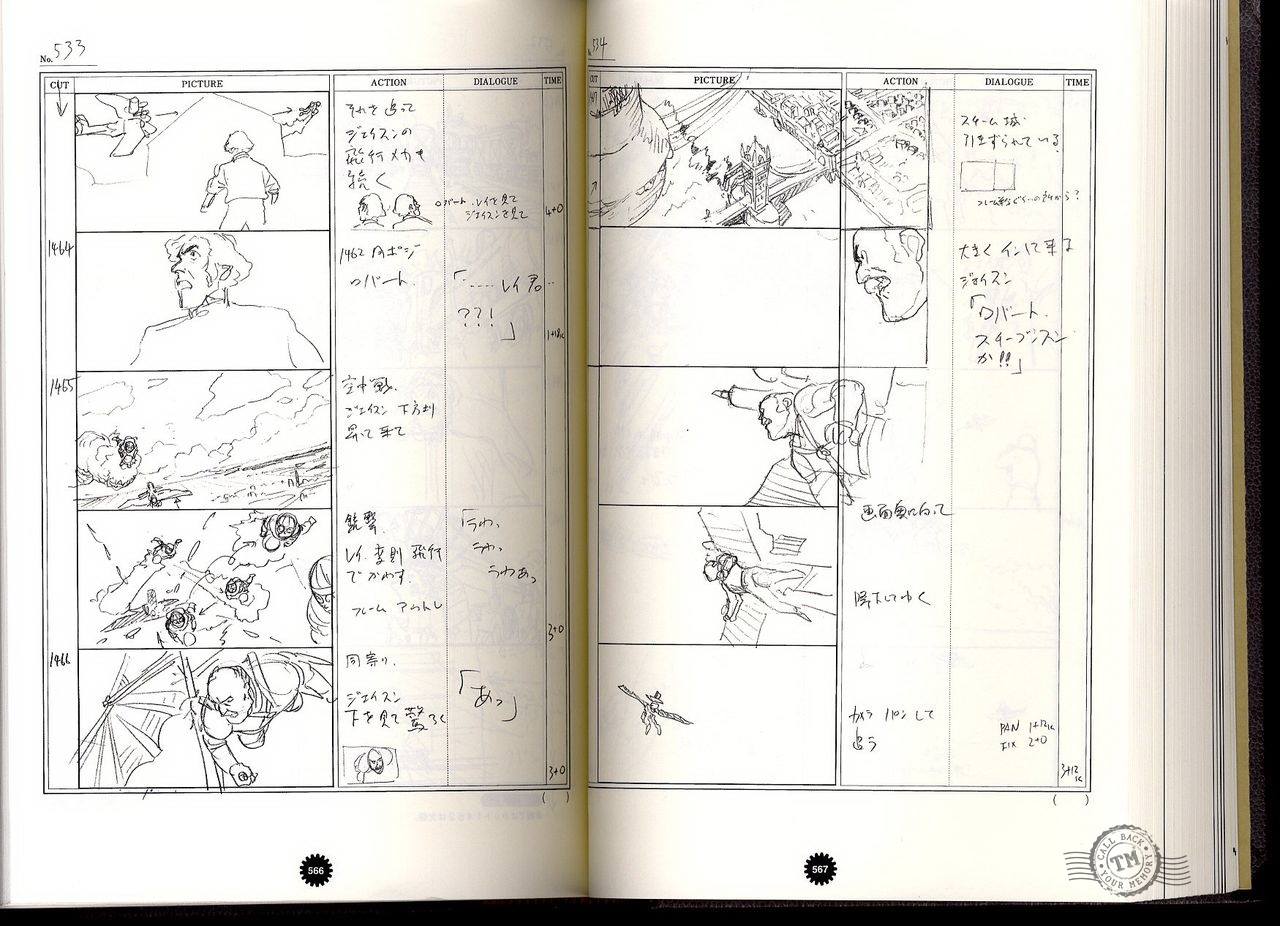 No. 533
CUT PICTURE ACTION DIALOGUE TIME
それを追って
ジェイスンの
飛行メカも
続く
ロバート、レイを見て
ジェイスンを見て
4+0
1464
1462 同ポジ
ロバート
「‥‥‥レイ君‥
??!
」
1465
空中戦、
ジェイスン 下方より
昇って来て
銃撃、
レイ 変則 飛行
でかわす。
フレームアウトし
「うわっ
うわっ
うわあっ
3+0
1466
同寄り、
ジェイスン
下を見て驚く
「あっ」
3+0
( )
566
534
CUT PICTURE ACTION DIALOGUE TIME
1467
スチーム城
引きずられている
大きくインして来る
ジェイスン
「ロバート・
スチーブンスン
か!!」
画面奥に向って
降下してゆく
カメラ パンして
追う
PAN 1+12K
FIX 2+0
3+12K
( )
567
CALL BACK
TM
YOUR MEMORY